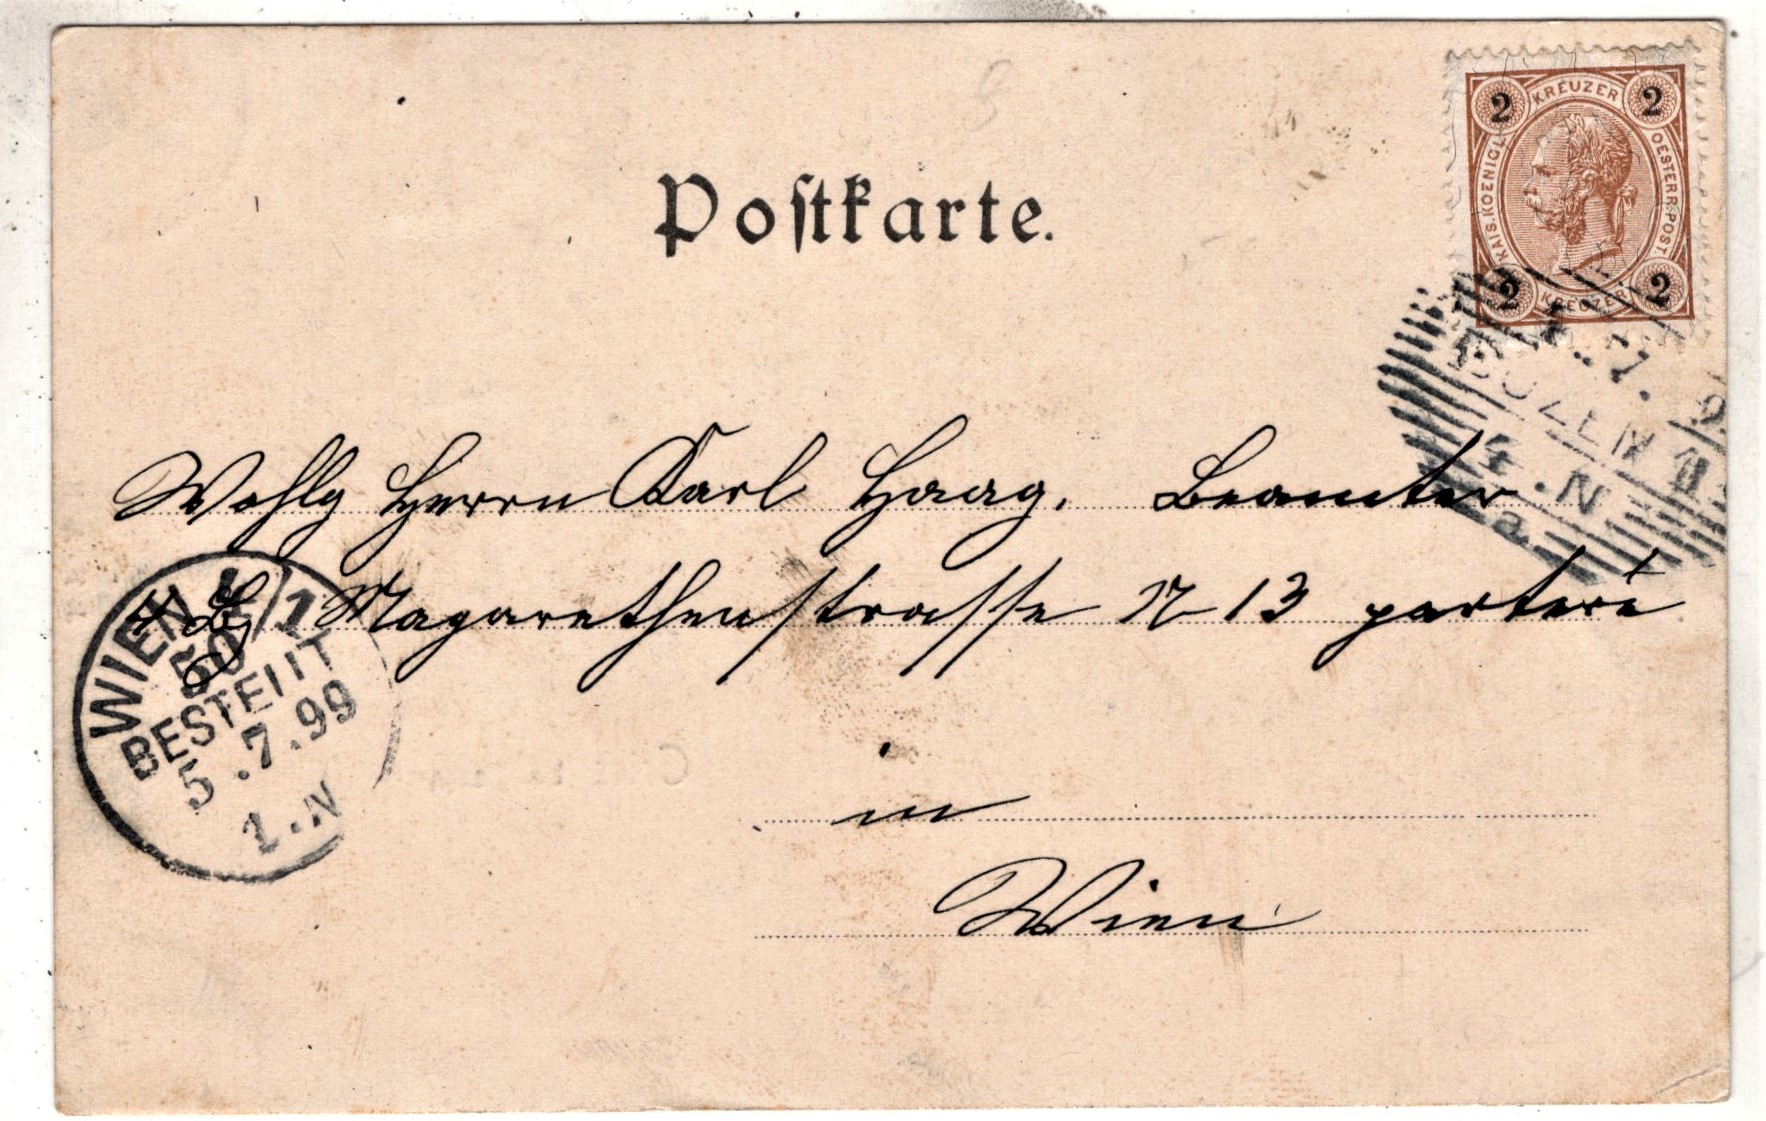 Postkarte.
2 KREUZER 2
KAIS. KOENIGL. OESTERR. POST
2 KREUZER 2
4.7.9
BOZEN 1
4.N
a
Wohlg Herrn Karl Haag, Beamter
Magarethenstrasse N 13 parterre
WIEN 4/1
50
BESTELLT
5.7.99
1.N
in
Wien